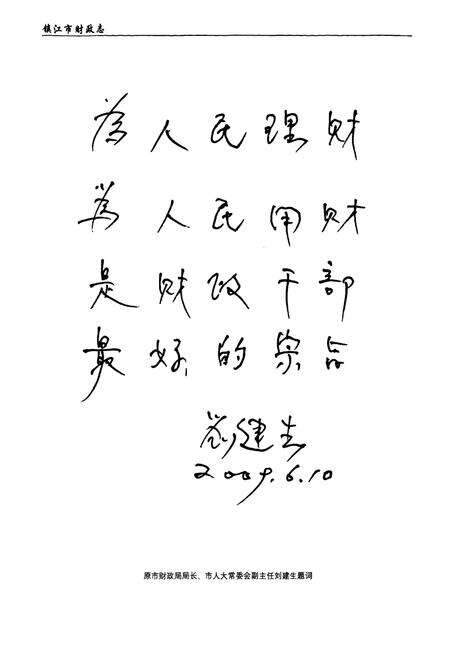 镇江市财政志
为人民理财
為人民用财
是财政干部
最好的宗旨
劉建生
2009.6.10
原市财政局局长、市人大常委会副主任刘建生题词